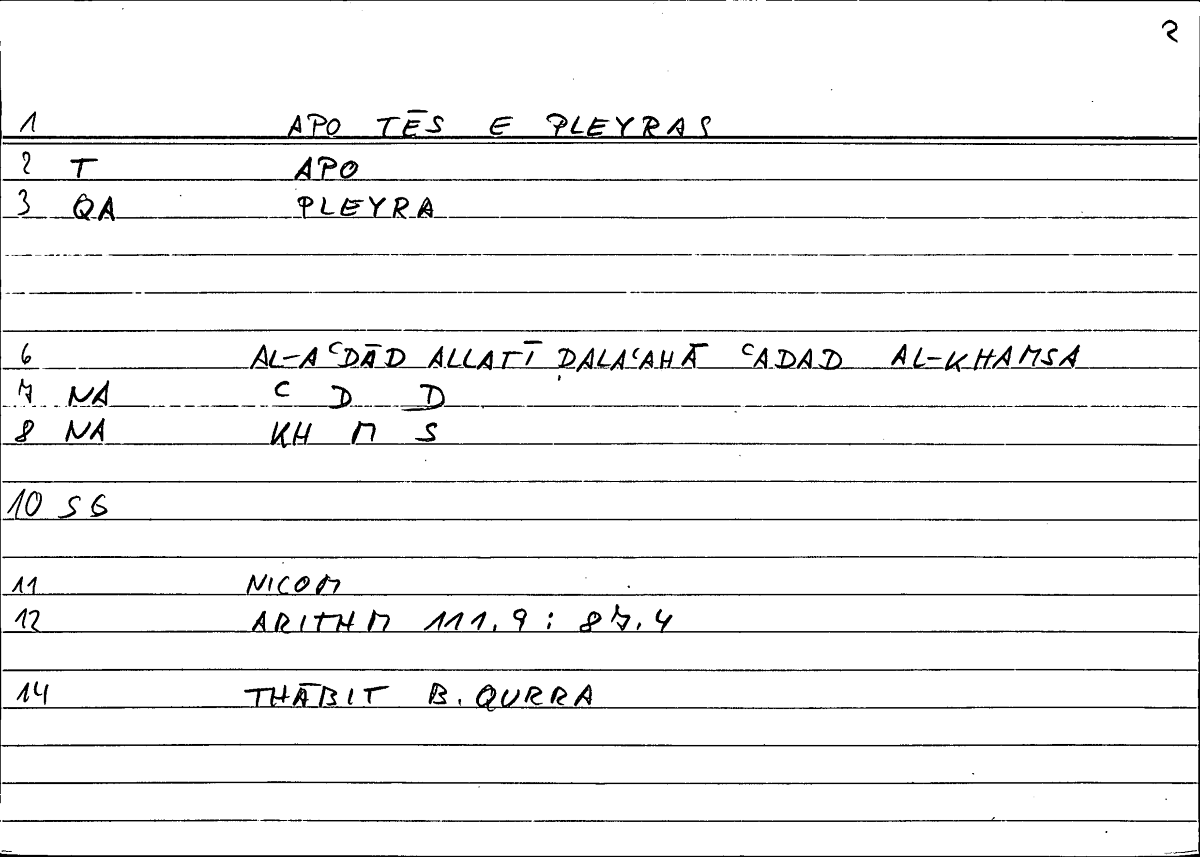 2
1 APO TĒS E PLEYRAS
2 T APO
3 QA PLEYRA
6 AL-AʿDĀD ALLATĪ ḌALAʿAHĀ ʿADAD AL-KHAMSA
7 NA ʿ D D
8 NA KH M S
10 SG
11 NICOM
12 ARITHM 111.9 : 87.4
14 THĀBIT B. QURRA